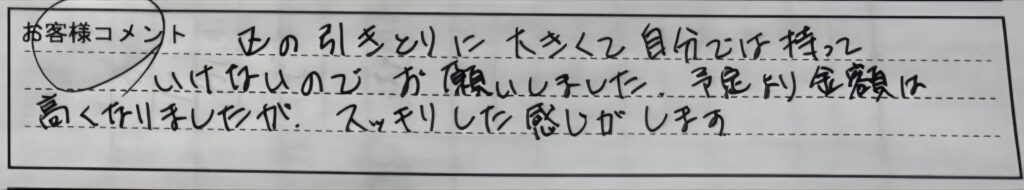 お客様コメント
の引きとりに 大きくて自分では持って
いけないので お願いしました. 予定より金額は
高くなりましたが. スッキリした感じがします